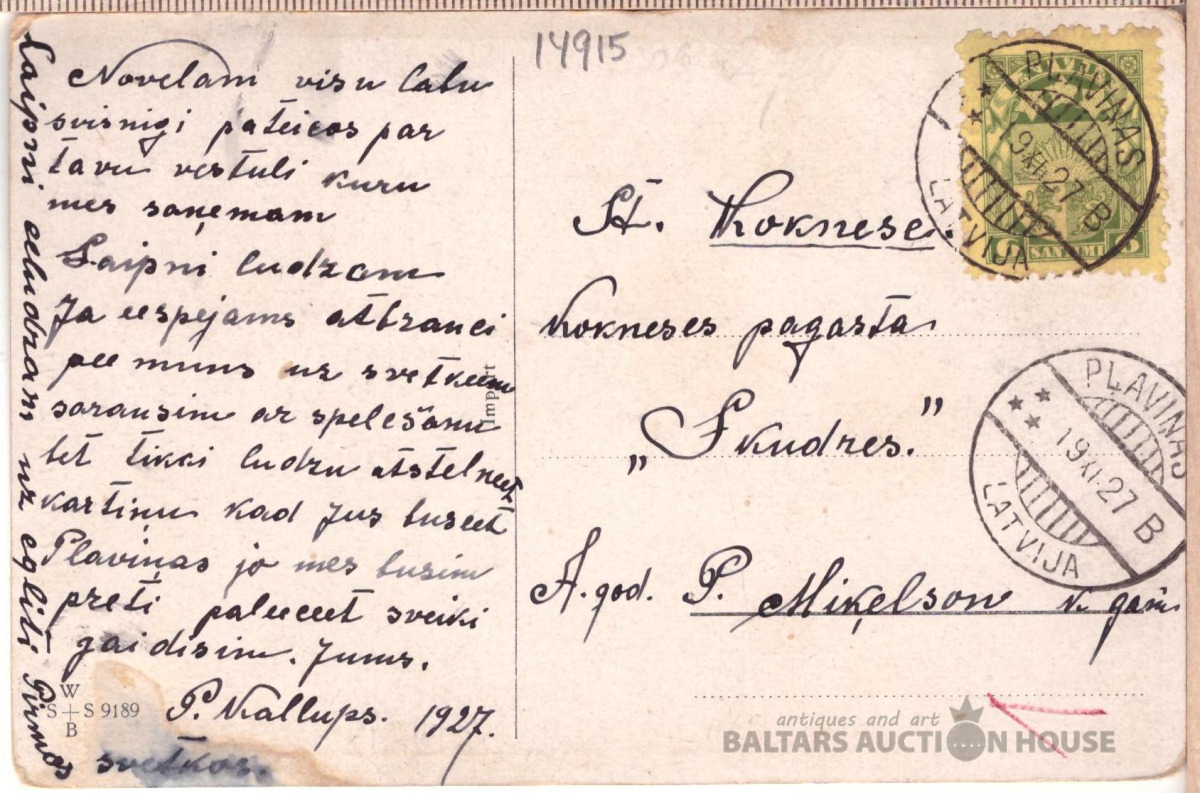 14915
Novelam visu labu
sirsnigi pateicos par
tavu vestuli kuru
mes saņemam
Laipni ludzam
Ja eespejams atbrauci
pee mums uz svetkeem
sarausim ar spelešanu
bet tikai ludzu atstelneet
kartiņu kad Jus buseet
Plaviņas jo mes busim
preti paleeceet sveiki
gaidisim. Jums.
P. Kallups. 1927.
Laipni eeludzam uz egliti Pirmos
svetkos.
W
S + S 9189
B
Import
St. Koknese.
Kokneses pagasta
„Skudres.”
A. god. P. Miķelson k. gam.
LATVIJA
SANTIMI
PLAVIŅAS
19.XI.27 B
LATVIJA
PLAVIŅAS
19.XI.27 B
LATVIJA
antiques and art
BALTARS AUCTION HOUSE